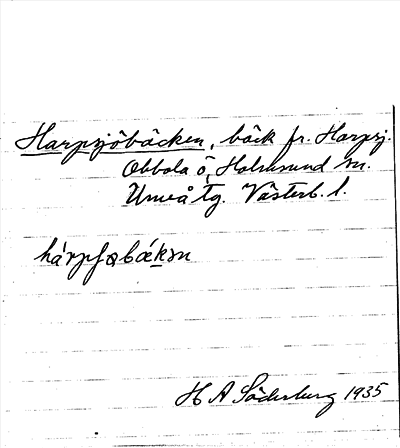 Harpsjöbäcken, bäck fr. Harpsj.
Obbola ö, Holmsund sn.
Umeå tg. Västerb. l.
H A Söderberg 1935